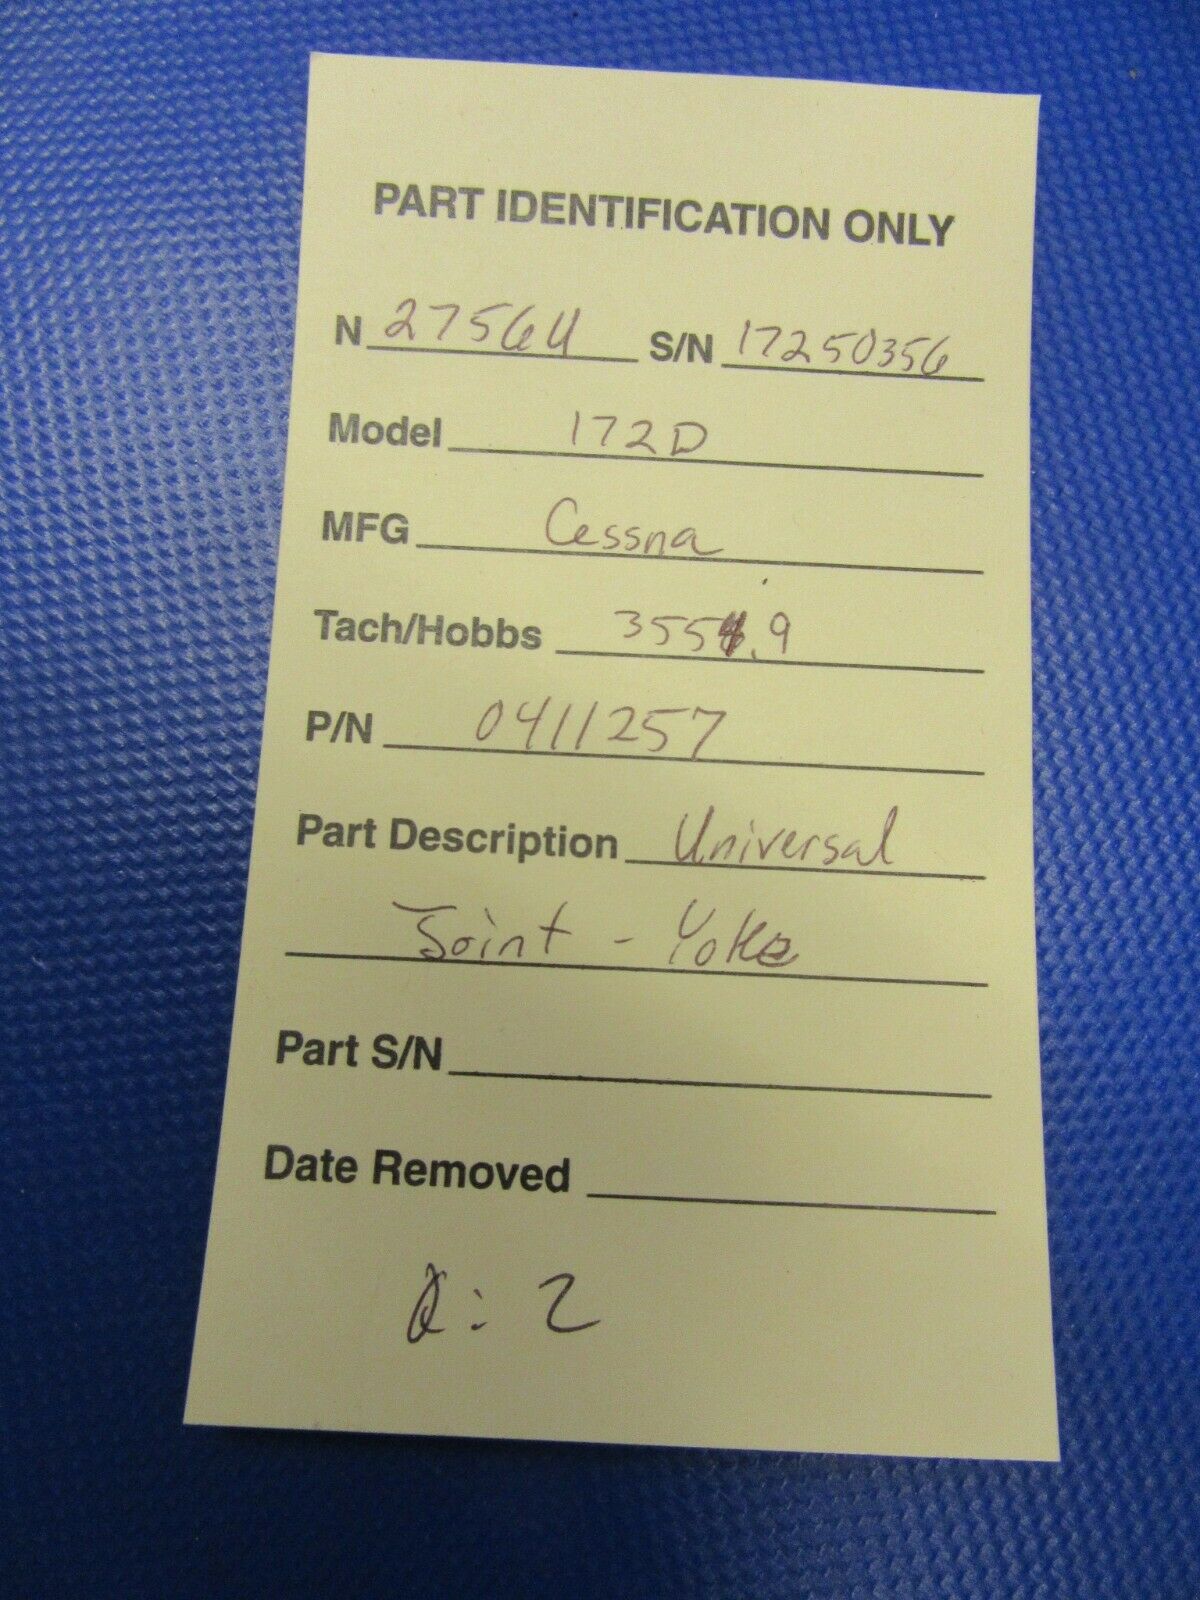 PART IDENTIFICATION ONLY
N 2756U S/N 17250356
Model 172D
MFG Cessna
Tach/Hobbs 3554.9
P/N 0411257
Part Description Universal
Joint - Yoke
Part S/N
Date Removed
Q: 2